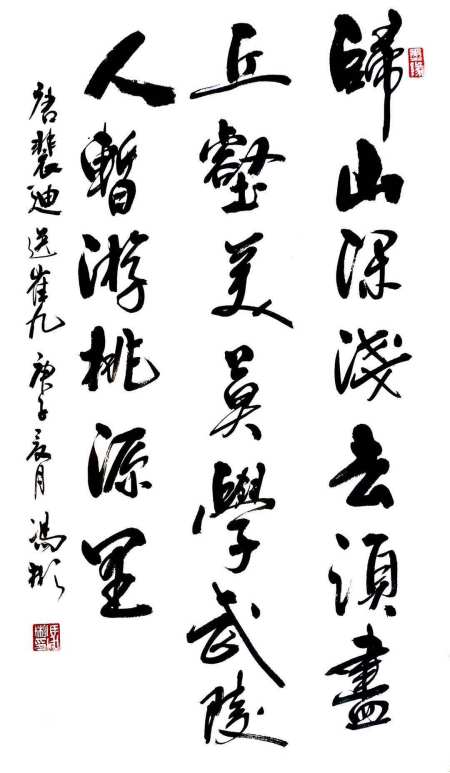 歸山深淺去須盡
丘壑美莫學武陵
人暫游桃源里
唐裴迪送崔九 庚子辰月 馮彬